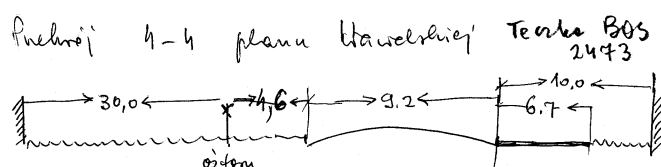 Przekrój 4-4 planu Wawelskiej Teczka BOS
2473
30,0 4,6 9.2 10,0
6.7
oś toru